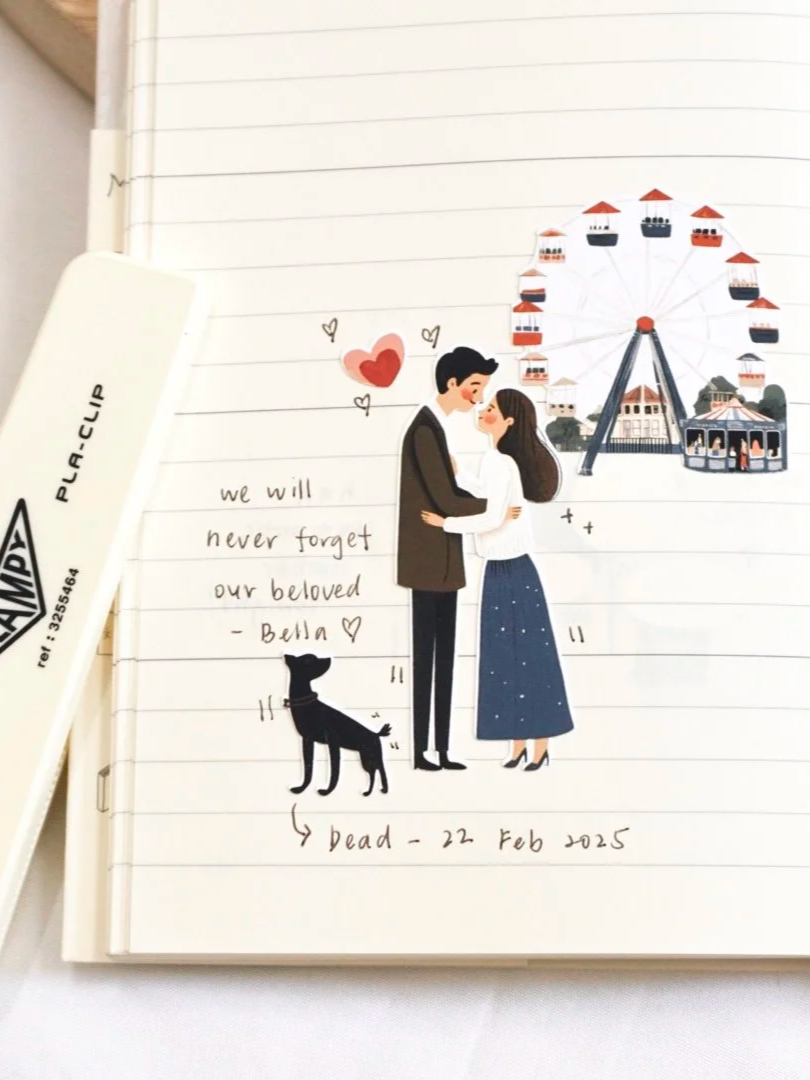 we will
never forget
our beloved
- Bella ♡
Dead - 22 Feb 2025
PLA-CLIP
ref : 3255464